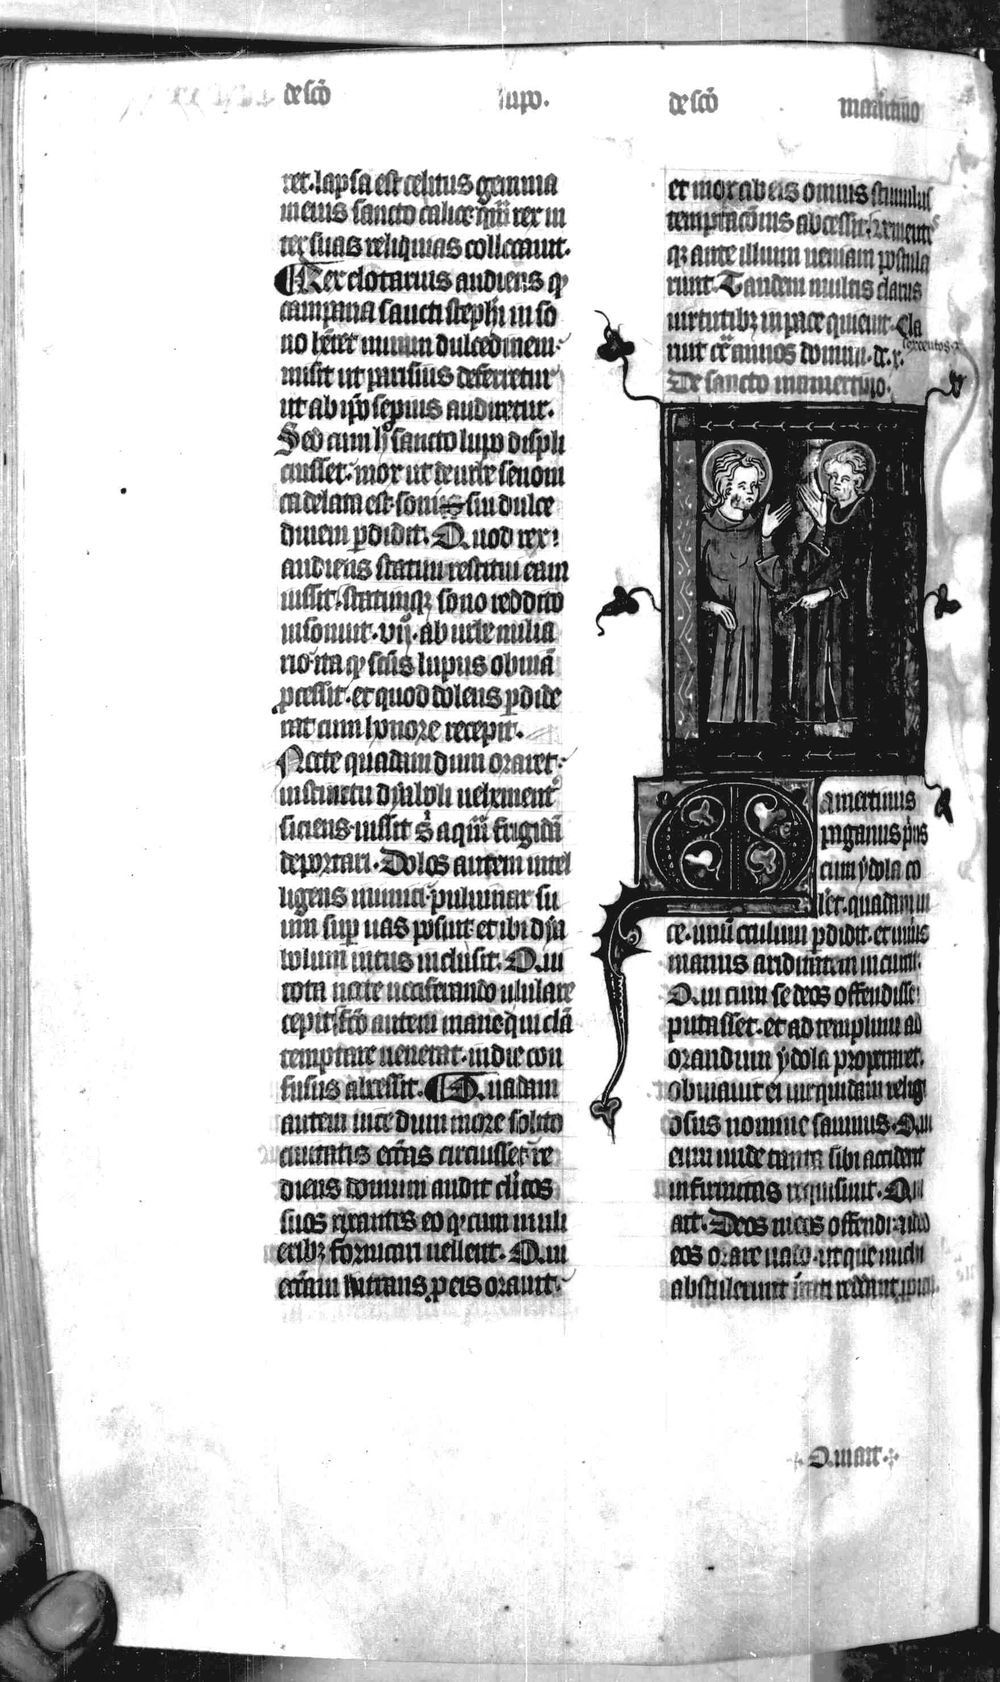 de scõ lupo. de scõ mamtino
ret. lapsa est celitus gemma
in eius sancto calice. quã rex in
ter suas reliquias collocauit.
Rex clotarius audiens qͥ
campana sancti stephi in so
no hẽret miram dulcedinem.
misit ut parisius deferretur
ut ab ipo sepius audiretur.
Sed cum h̾ sancto lupo displi
cuisset. mox ut de urbe senoni
ca delata est. soni sui dulce
dinem ꝑdidit. Quod rex
audiens statim restitui eam
iussit. statimqꝫ sono reddito
insonuit. vij. ab urbe milia
rio. ita qͥ scũs lupus obuiã
ꝓcessit. et quod dolens ꝑdide
rat cum honore recepit.
Nocte quadam dum oraret.
instinctu dyaboli uehementꝰ
siciens. iussit s̾ aquã frigidã
deportari. Dolos autem intel
ligens inimici. puluinar su
um suꝑ uas posuit. et ibi dya
bolum intus inclusit. Qui
tota nocte uociferando ululare
cepit. fctõ autem mane. qui clã
temptare uenerat. in die con
fusus abcessit. Quadam
autem uice dum more solito
ciuitatis eccãs circuisset. re
diens domum audit cl̾icos
suos rixantes eo qͥ cum muli
eribꝫ fornicari uellent. Qui
eccãm intrans. ꝓ eis orauit.
et mox ab eis omnis stimulus
temptacõnis abcessit. uenient
qꝫ ante illum ueniam postula
runt. Tandem multis clarus
uirtutibꝫ in pace quieuit. Cla
ruit circa annos domini. dc. x.
sexcentos
De sancto mamertino.
Mamertinus
paganus pͥus
cum ydola co
leret. quadam ui
ce. unũ oculum ꝑdidit. et mãus
manus ariditatem incurrit.
Qui cum se deos offendisse
putasset. et ad templum ad
orandum ydola properaret.
obuiauit ei uir quidam religi
osus nomine sauinus. Qui
cum unde tanta sibi accident
infirmitas requisiuit. Qui
ait. Deos meos offendi. ideo
eos orare uado. ut que michi
abstulerunt
Q.uiait.